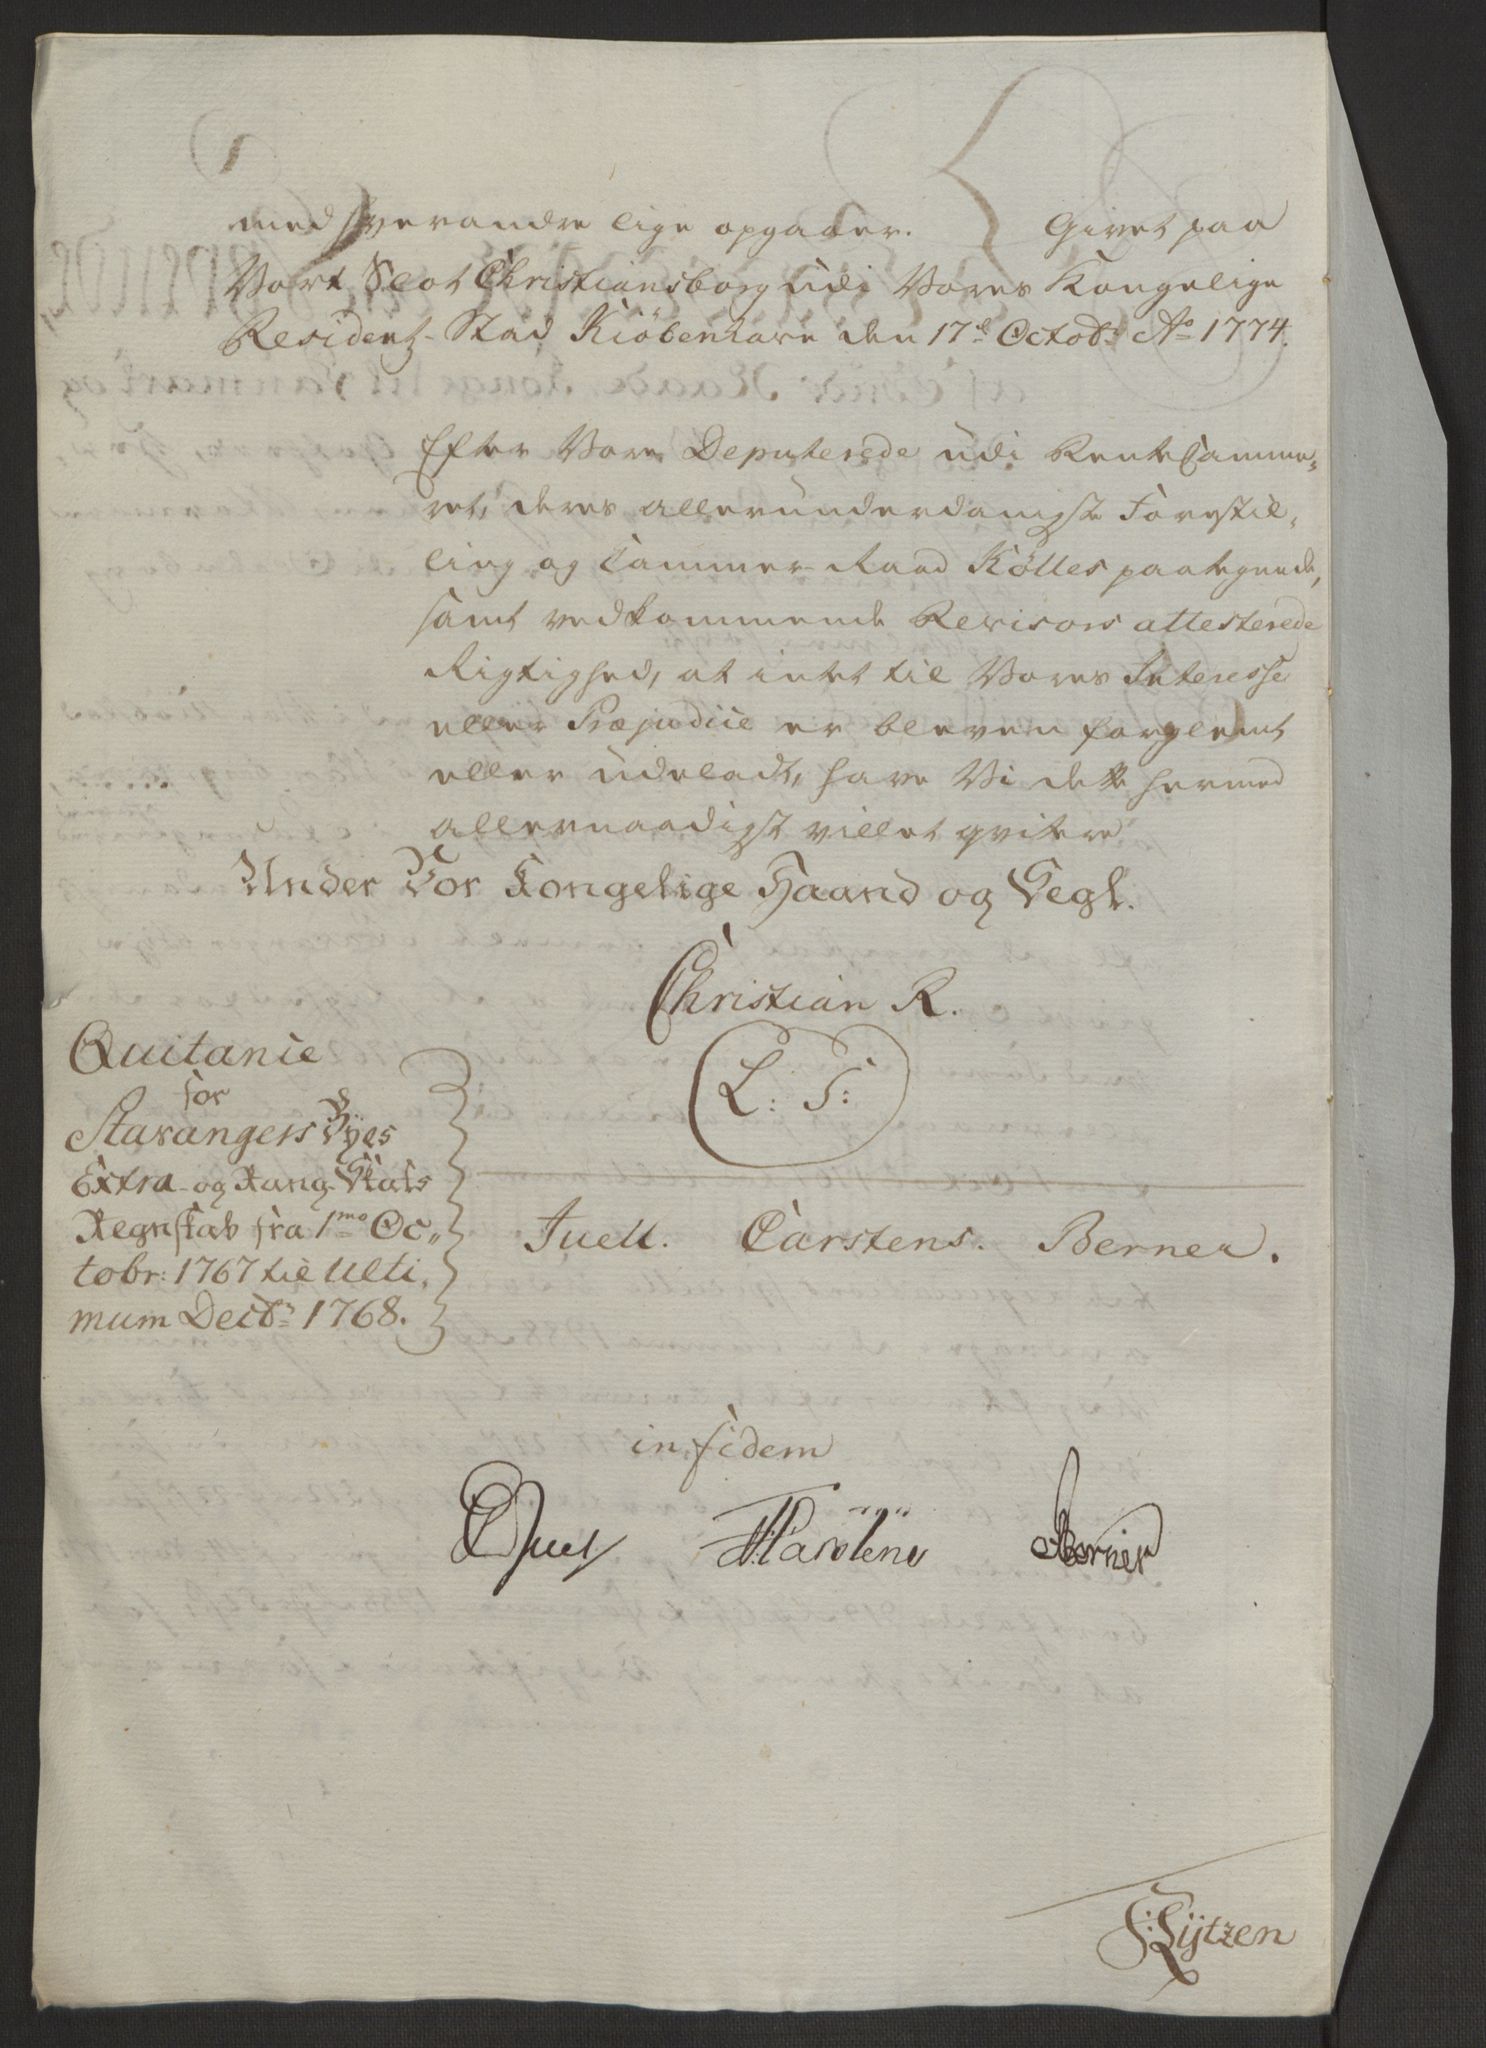 med hverandre lige opgaaer. Givet paa
Vort Slot Christiansborg udi Vores Kongelige
Residentz-Stad Kiöbenhavn den 17de Octobr: Ao 1774.
Efter Vore Deputerede udi RenteCamme-
ret, deres allerunderdanigste Forestil-
ling og Cammer-Raad Kölles paategnede,
samt vedkommende Revisors attesterede
Rigtighed, at intet til Vores Interesse
eller Præjudice er bleven forglemt
eller udeladt, have Vi dette hermed
allernaadigst villet qvitere
Under Vor Kongelige Haand og Segl.
Christian R.
L: S:
Quitanie
for
Stavangers Byes
Extra- og Rang-Skats
Regnskab fra 1mo Oc-
tobr: 1767 til Ulti-
mum Decbr 1768.
Juell. Carstens. Berner.
in fidem
Juel Carstens Berner
Lÿtzen